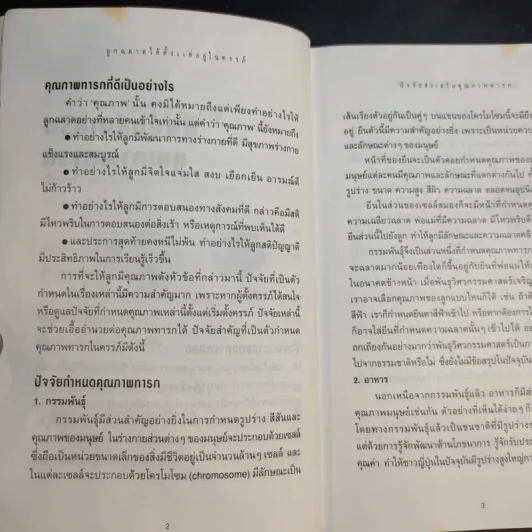 ลูกฉลาดได้ตั้งแต่อยู่ในครรภ์
คุณภาพทารกที่ดีเป็นอย่างไร
คำว่า 'คุณภาพ' นั้น คงมิได้หมายถึงแต่เพียงทำอย่างไรให้
ลูกฉลาดอย่างที่หลายคนเข้าใจเท่านั้น แต่คำว่า 'คุณภาพ' นี้ยังหมายถึง
● ทำอย่างไรให้ลูกมีพัฒนาการทางร่างกายที่ดี มีสุขภาพร่างกาย
แข็งแรงและสมบูรณ์
● ทำอย่างไรให้ลูกมีจิตใจแจ่มใส สงบ เยือกเย็น อารมณ์ดี
ไม่ก้าวร้าว
● ทำอย่างไรให้ลูกมีการตอบสนองทางสังคมที่ดี กล่าวคือมีสติ
มีไหวพริบในการตอบสนองต่อสิ่งเร้า หรือเหตุการณ์ที่พบเห็นได้ดี
● และประการสุดท้ายคงหนีไม่พ้น ทำอย่างไรให้ลูกสติปัญญาดี
มีประสิทธิภาพในการเรียนรู้เร็วขึ้น
การที่จะให้ลูกมีคุณภาพดังหัวข้อที่กล่าวมานี้ ปัจจัยที่เป็นตัว
กำหนดในเรื่องเหล่านี้มีความสำคัญมาก เพราะหากผู้ตั้งครรภ์ได้สนใจ
หรือดูแลปัจจัยที่กำหนดคุณภาพเหล่านี้ตั้งแต่เริ่มตั้งครรภ์ ปัจจัยเหล่านี้
จะช่วยเอื้ออำนวยต่อคุณภาพทารกได้ ปัจจัยสำคัญที่เป็นตัวกำหนด
คุณภาพทารกในครรภ์มีดังนี้
ปัจจัยกำหนดคุณภาพทารก
1. กรรมพันธุ์
กรรมพันธุ์มีส่วนสำคัญอย่างยิ่งในการกำหนดรูปร่าง สีสันและ
คุณภาพของมนุษย์ ในร่างกายส่วนต่างๆ ของมนุษย์จะประกอบด้วยเซลล์
ซึ่งถือเป็นหน่วยขนาดเล็กของสิ่งมีชีวิตอยู่เป็นจำนวนล้านๆ เซลล์ และ
ในแต่ละเซลล์จะประกอบด้วยโครโมโซม (chromosome) มีลักษณะเป็น
2
ปัจจัยส่งเสริมคุณภาพทารก
เส้นเรียงตัวอยู่กันเป็นคู่ๆ บนแขนของโครโมโซมนี้จะมียีน
อยู่ ยีนตัวนี้มีความสำคัญอย่างยิ่ง เพราะเป็นหน่วยควบ
และลักษณะต่างๆ ของมนุษย์
หน้าที่ของยีนจะเป็นตัวคอยกำหนดคุณภาพของม
มนุษย์แต่ละคนมีคุณภาพและลักษณะที่แตกต่างกันไป ทั้
รูปร่าง ขนาด ความสูง สีผิว ความฉลาด ตลอดจนอุปนิ
ยีนในส่วนของเซลล์สมองก็จะมีหน้าที่กำหนดค
ความเฉลียวฉลาด พ่อแม่ที่มีความฉลาด มีไหวพริบดี
ยีนส่วนนี้ไปยังลูก ทำให้ลูกมีลักษณะและความฉลาดคล้
กรรมพันธุ์จึงเป็นส่วนหนึ่งที่กำหนดคุณภาพทารก
จะฉลาดมากน้อยเพียงใดก็ขึ้นอยู่กับยีนที่พ่อแม่ให้ม
ในอนาคตข้างหน้า เมื่อพันธุวิศวกรรมศาสตร์เจริญ
เราอาจเลือกคุณภาพของลูกแบบไหนก็ได้ เช่น ถ้าต้
สีฟ้า เราก็กำหนดยีนตาสีฟ้าเข้าไป หรือหากต้องการใ
ก็อาจใส่ยีนที่กำหนดความฉลาดนั้นๆ เข้าไปได้ อย
ถกเถียงกันอย่างมากว่าพันธุวิศวกรรมศาสตร์เป็นก
ไปจากธรรมชาติหรือไม่ ซึ่งยังไม่มีข้อสรุปในปัจจุบัน
2. อาหาร
นอกเหนือจากกรรมพันธุ์แล้ว อาหารก็มีส่
คุณภาพมนุษย์เช่นกัน ตัวอย่างที่เห็นได้ง่ายๆ ก็
โดยทางกรรมพันธุ์แล้วเป็นชนชาติที่มีรูปร่าง
แต่ด้วยการรู้จักพัฒนาด้านโภชนาการ รู้จักรับประ
คุณค่า ทำให้ชาวญี่ปุ่นในปัจจุบันมีรูปร่างสูงใหญ่กว่
3